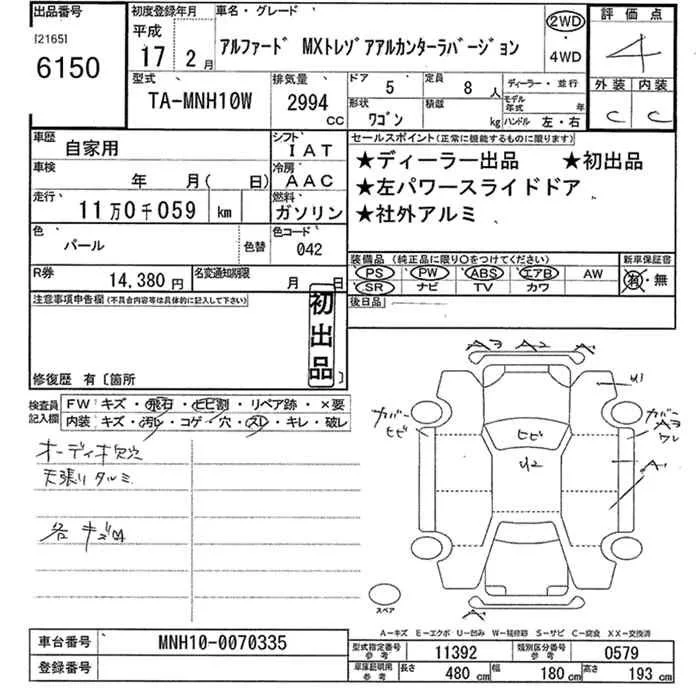 出品番号
[2165]
6150
初度登録年月
平成
17 2月
車名・グレード
アルファード MXトレゾアアルカンターラバージョン
2WD
・
4WD
評価点
4
外装 内装
C C
型式
TA-MNH10W
排気量
2994
CC
ドア 5
形状 ワゴン
定員 8 人
積載 kg
ディーラー・並行
モデル年式 年
ハンドル 左・右
車歴 自家用
シフト IAT
車検 年 月( 日)
冷房 AAC
走行 11万0千059 km
燃料 ガソリン
色 パール 色替
色コード 042
R券 14,380円
名変通知期限 月 日
セールスポイント(正常に機能するものに限ります)
★ディーラー出品 ★初出品
★左パワースライドドア
★社外アルミ
装備品 (純正品に限り○をつけてください)
新車保証書
PS PW ABS エアB AW
SR ナビ TV カワ
有・無
後日品
注意事項申告欄(不具合内容等は具体的に記入して下さい)
初出品
修復歴 有〔箇所 〕
検査員記入欄
FW キズ・飛石・ヒビ割・リペア跡・×要
内装 キズ・汚レ・コゲ・穴・スレ・キレ・破レ
オーディオ欠
天張りタルミ
各キズ
A3 A2 A
U1
カバー
ヒビ
ヒビ
U2
カバー
A3
ワレ
A
A
スペア
A-キズ E-エクボ U-凹み W-補修跡 S-サビ C-腐食 XX-交換済
車台番号 MNH10-0070335
登録番号
型式指定番号参考 11392
類別区分番号参考 0579
車庫証明用参考 長さ 480 cm 幅 180 cm 高さ 193 cm